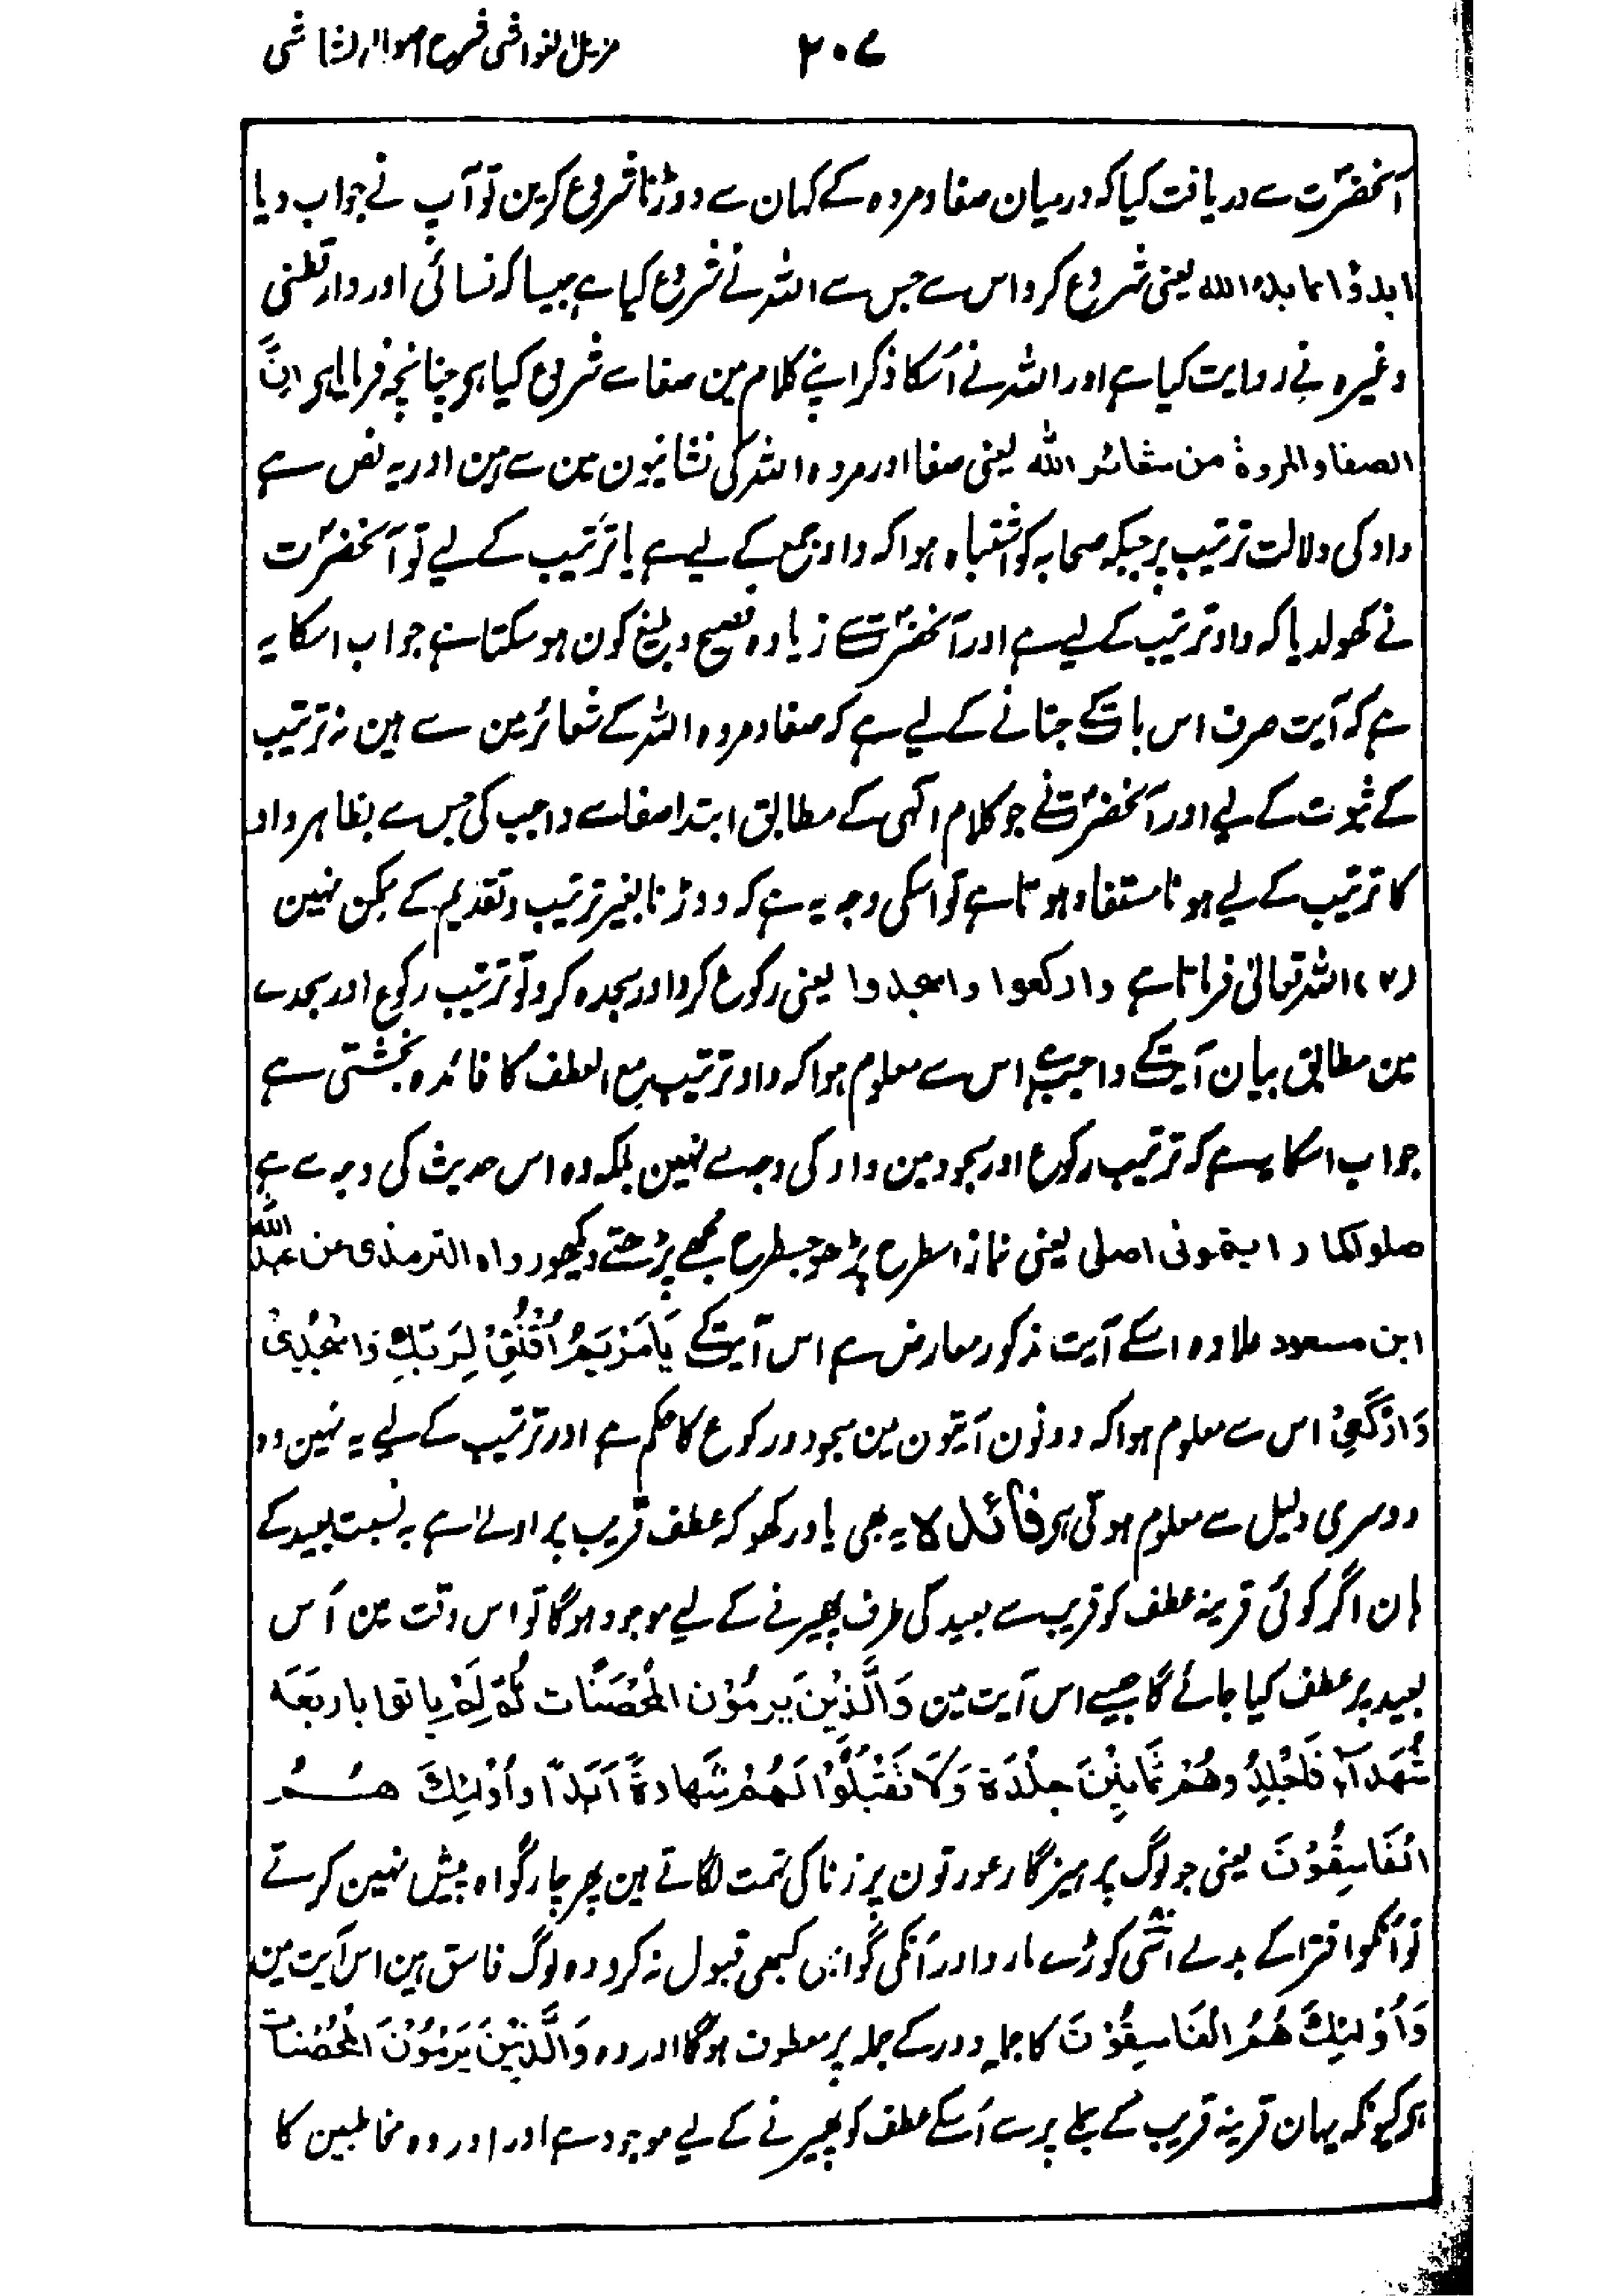 ۲۰۷ مزیل الغواشی شرح اصول الشاشی
آنحضرؐت سے دریافت کیا کہ درمیان صفا و مروہ کے کہان سے دوڑنا شروع کرین تو آپ نے جواب دیا
ابدؤا بما بدء الله یعنی شروع کرو اس سے جس سے اللہ نے شروع کیا ہے جیسا کہ نسائی اور دارقطنی
وغیرہ نے روایت کیا ہے اور اللہ نے اُسکا ذکر اپنے کلام مین صفا سے شروع کیا ہی چنانچہ فرمایا ہی اِنَّ
الصفا والمروة من شعائر الله یعنی صفا اور مروہ اللہ کی نشانیون مین سے ہین اور یہ نص ہے
واو کی دلالت ترتیب پر جبکہ صحابہ کو اشتباہ ہوا کہ واو جمع کے لیے ہے یا ترتیب کے لیے تو آنحضرؐت
نے کھولدیا کہ واو ترتیب کے لیے ہے اور آنحضرؐت سے زیادہ فصیح و بلیغ کون ہو سکتا ہے جواب اسکا یہ
ہے کہ آیت صرف اس بات کے جتانے کے لیے ہے کہ صفا و مروہ اللہ کے شعائر مین سے ہین نہ ترتیب
کے ثبوت کے لیے اور آنحضرؐت نے جو کلام الٰہی کے مطابق ابتدا صفا سے واجب کی جس سے بظاہر واو
کا ترتیب کے لیے ہونا مستفاد ہوتا ہے تو اسکی وجہ یہ ہے کہ دوڑنا بغیر ترتیب و تقدیم کے ممکن نہین
(۲) اللہ تعالیٰ فرماتا ہے وارکعوا واسجدوا یعنی رکوع کرو اور سجدہ کرو تو ترتیب رکوع اور سجدے
مین مطابق بیان آیت کے واجب ہے اس سے معلوم ہوا کہ واو ترتیب مع العطف کا فائدہ بخشتی ہے
جواب اسکا یہ ہے کہ ترتیب رکوع اور سجود مین واو کی وجہ سے نہین بلکہ وہ اس حدیث کی وجہ سے ہے
صلوا کما رایتمونی اصلی یعنی نماز اسطرح پڑھو جسطرح مجھے پڑھتے دیکھو رواہ الترمذی عن عبد الله
ابن مسعود علاوہ اسکے آیت مذکور معارض ہے اس آیت کے یَا مَرْیَمُ اقْنُتِیْ لِرَبِّکِ وَاسْجُدِیْ
وَارْکَعِیْ اس سے معلوم ہوا کہ دونون آیتون مین سجود و رکوع کا حکم ہے اور ترتیب کے لیے یہ نہین وہ
دوسری دلیل سے معلوم ہوتی ہی فائدہ یہ بھی یاد رکھو کہ عطف قریب پر اولے ہے بہ نسبت بعید کے
ہان اگر کوئی قرینہ عطف کو قریب سے بعید کی طرف پھیرنے کے لیے موجود ہوگا تو اس وقت مین اُس
بعید پر عطف کیا جائے گا جیسے اس آیت مین وَالَّذِیْنَ یَرْمُوْنَ الْمُحْصَنَات ثُمَّ لَمْ یَاتوا باربَعَه
شُهَدَآءَ فَاجْلِدُوهُمْ ثَمَانِیْنَ جلْدَة وَلَا تَقْبَلُوْا لَهُمْ شَهَادَةً اَبَدًا وَاُوْلٰئِكَ هُمُ
الْفَاسِقُوْنَ یعنی جو لوگ پرہیزگار عورتون پر زنا کی تہمت لگاتے ہین پھر چار گواہ پیش نہین کرتے
تو اُنکو افترا کے بدلے اسّی کوڑے مارو اور اُنکی گواہی کبھی قبول نہ کرو وہ لوگ فاسق ہین اس آیت مین
وَاُوْلٰئِكَ هُمُ الْفَاسِقُوْنَ کا جملہ دور کے جملہ پر معطوف ہوگا اور وہ وَالَّذِیْنَ یَرْمُوْنَ الْمُحْصَنَات
ہی کیونکہ یہان قرینہ قریب کے جملے پر سے اُسکے عطف کو پھیرنے کے لیے موجود ہے اور اور وہ مخاطبین کا